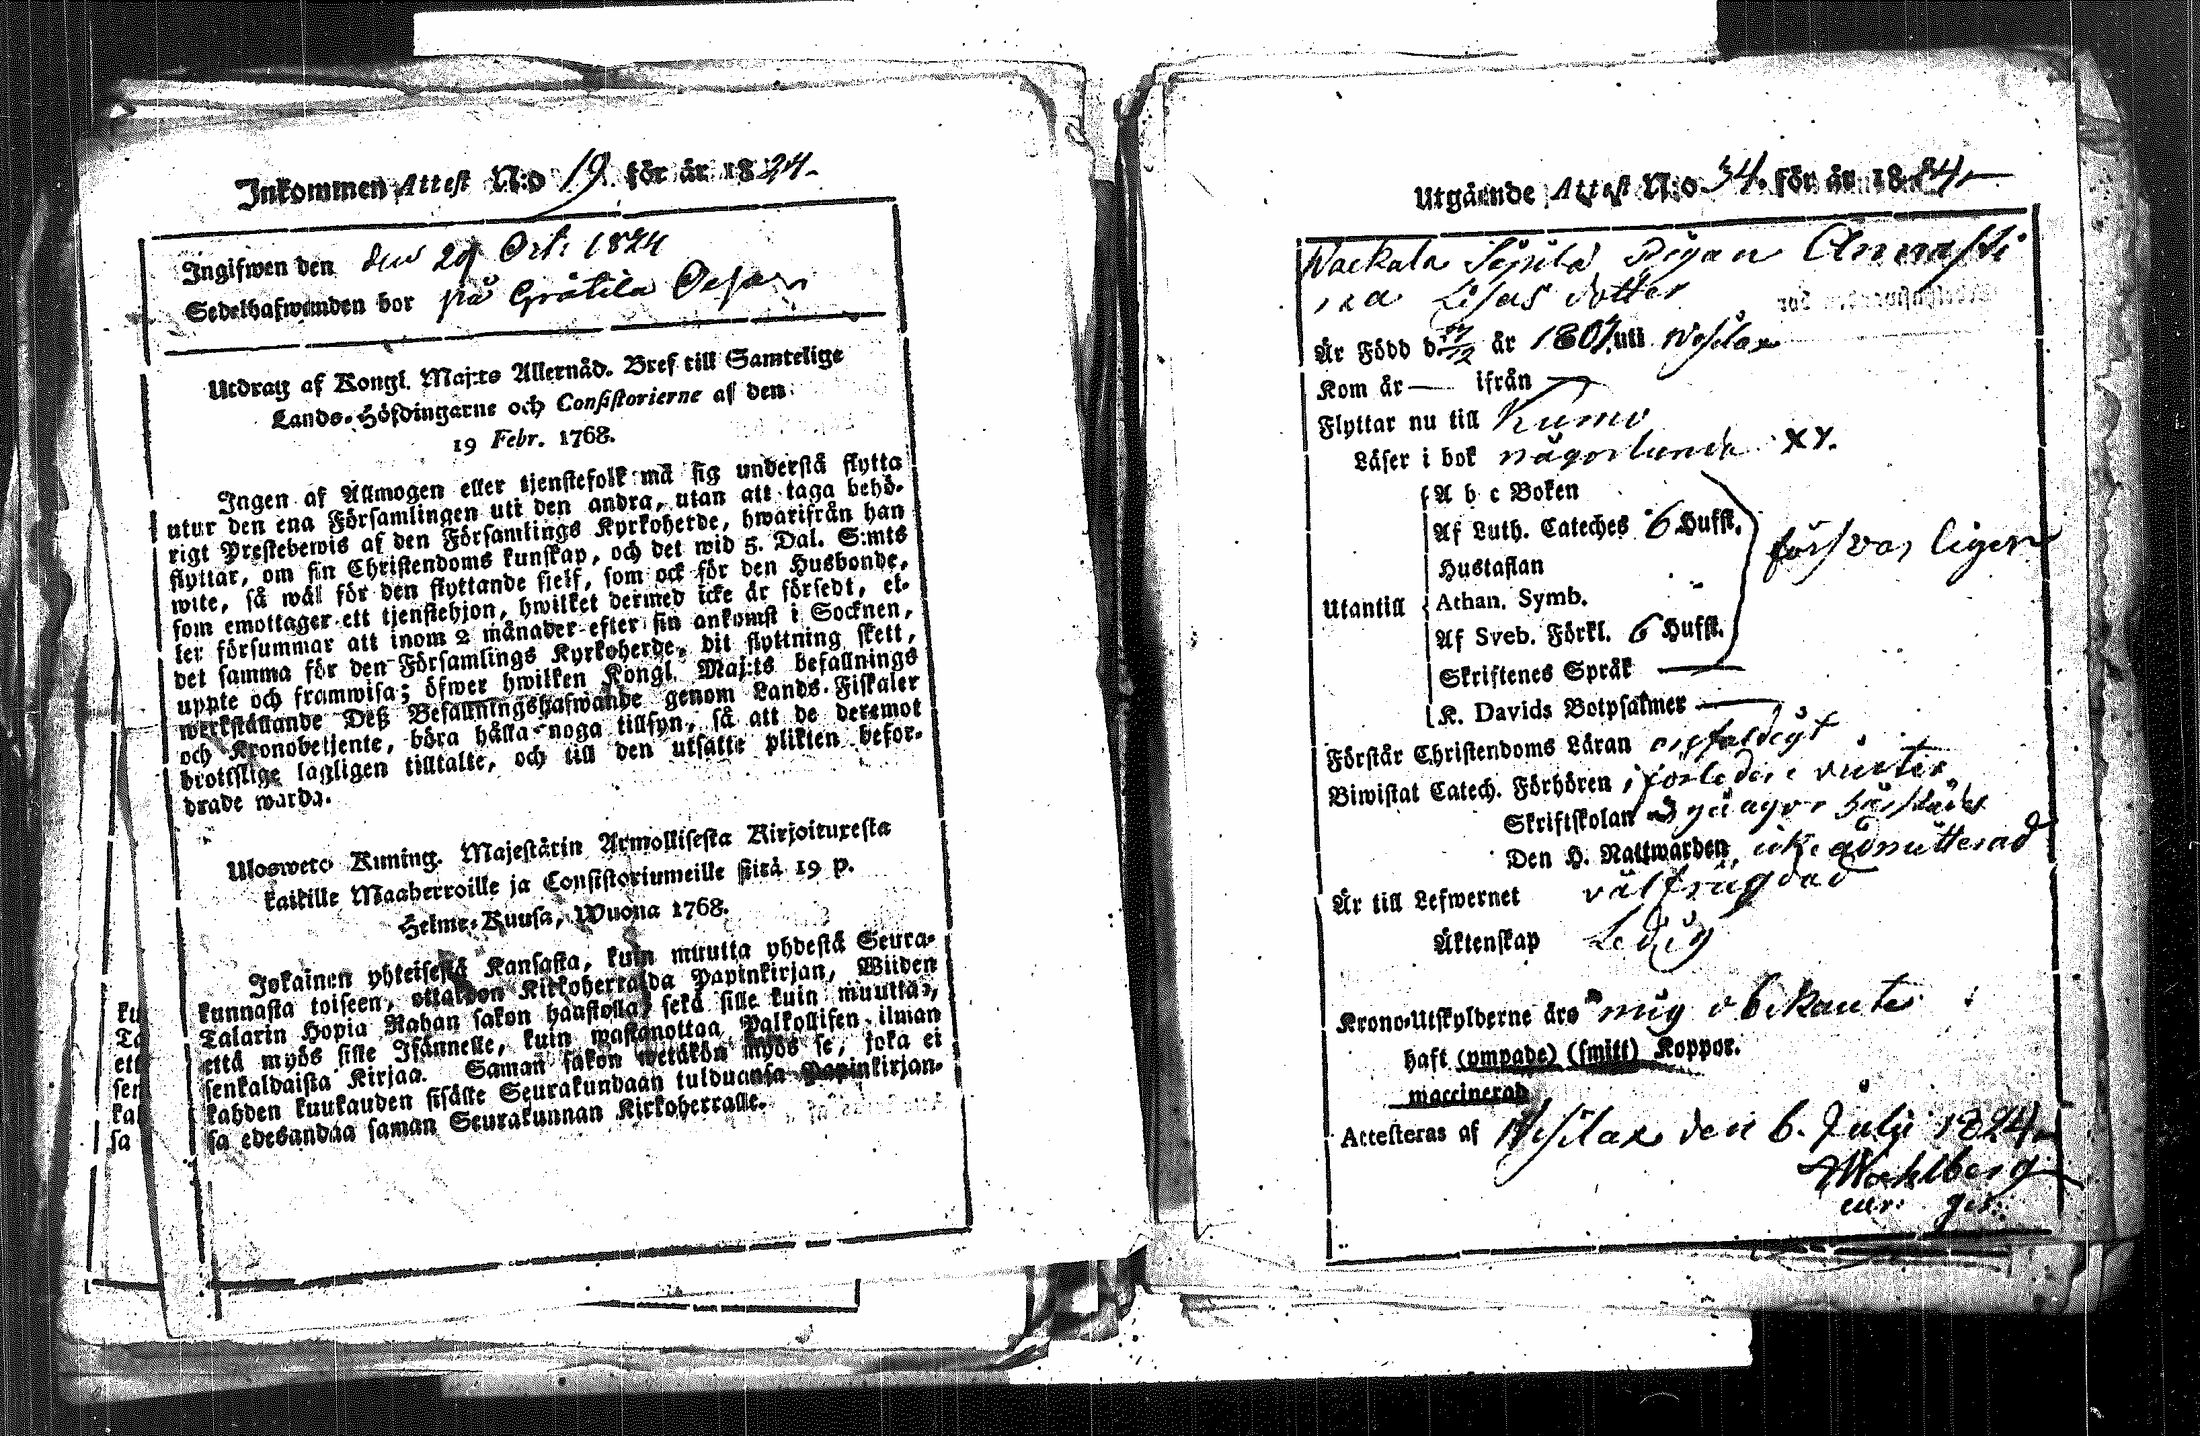 Inkommen Attest N:o 19. för år 1824.
Ingifwen den den 29 Oct: 1824
Sedelhafwanden bor på Gråtila
Utdrag af Kongl. Maj:ts Allernåd. Bref till Samtelige
Lands-Höfdingarne och Consistorierne af den
19 Febr. 1768.
Ingen af Allmogen eller tjenstefolk må sig understå flytta
utur den ena Församlingen uti den andra, utan att taga behö-
rigt Prestebewis af den Församlings Kyrkoherde, hwarifrån han
flyttar, om sin Christendoms kunskap, och det wid 5. Dal. S:mts
wite, så wäl för den flyttande sjelf, som ock för den Husbonde,
som emottager ett tjenstehjon, hwilket dermed icke är försedt, el-
ler försummar att inom 2 månader efter sin ankomst i Socknen,
det samma för den Församlings Kyrkoherde, dit flyttning skett,
uppte och framwisa; öfwer hwilken Kongl. Maj:ts befallnings
werkställande Deß Befallningshafwande genom Lands-Fiskaler
och Kronobetjente, böra hålla noga tillsyn, så att de deremot
brottslige lagligen tilltalte, och till den utsatte plikten befor-
drade warda.
Ulosweto Kuning. Majestätin Armollisesta Kirjoituxesta
kaikille Maaherroille ja Consistoriumeille siitä 19 p.
Helme-Kuusa, Wuona 1768.
Jokainen yhteisestä Kansasta, kuin muutta yhdestä Seura-
kunnasta toiseen, ottakoon Kirkoherralda Papinkirjan, Wiiden
Talarin Hopia Rahan sakon haastolla, sekä sille kuin muuttaa,
että myös sille Isännelle, kuin wastanottaa Palkollisen ilman
senkaldaista Kirjaa. Saman sakon wetäkön myös se, joka ei
kahden kuukauden sisälle Seurakundaan tulduansa Papinkirjan-
sa edesandaa saman Seurakunnan Kirkoherralle.
ku
Ta
ett
sen
kal
sa
Utgående Attest N:o 34. för år 1824.
Wackala Seppilä Pigan Anna Sti
na Lisas dotter
Är Född d. 17/12 år 1807 uti Wesilax
Kom år — ifrån —
Flyttar nu till Kumo
Läser i bok någorlunda XY.
A b c Boken
Af Luth. Cateches 6 Hufst.
Hustaflan
försvarligen
Utantill Athan. Symb.
Af Sveb. Förkl. 6 Hufst.
Skriftenes Språk —
K. Davids Botpsalmer —
Förstår Christendoms Läran enfaldigt
Biwistat Catech. Förhören i förledene vinter
Skriftskolan 3 gånger härstädes
Den H. Nattwarden icke admitterad
Är till Lefwernet välfrägdad
Äktenskap Ledig
Krono-Utskylderne äro mig obekante
haft (ympade) (smitt) Koppor.
waccinerad
Attesteras af Wesilax den 6. Julii 1824.
Wahlberg